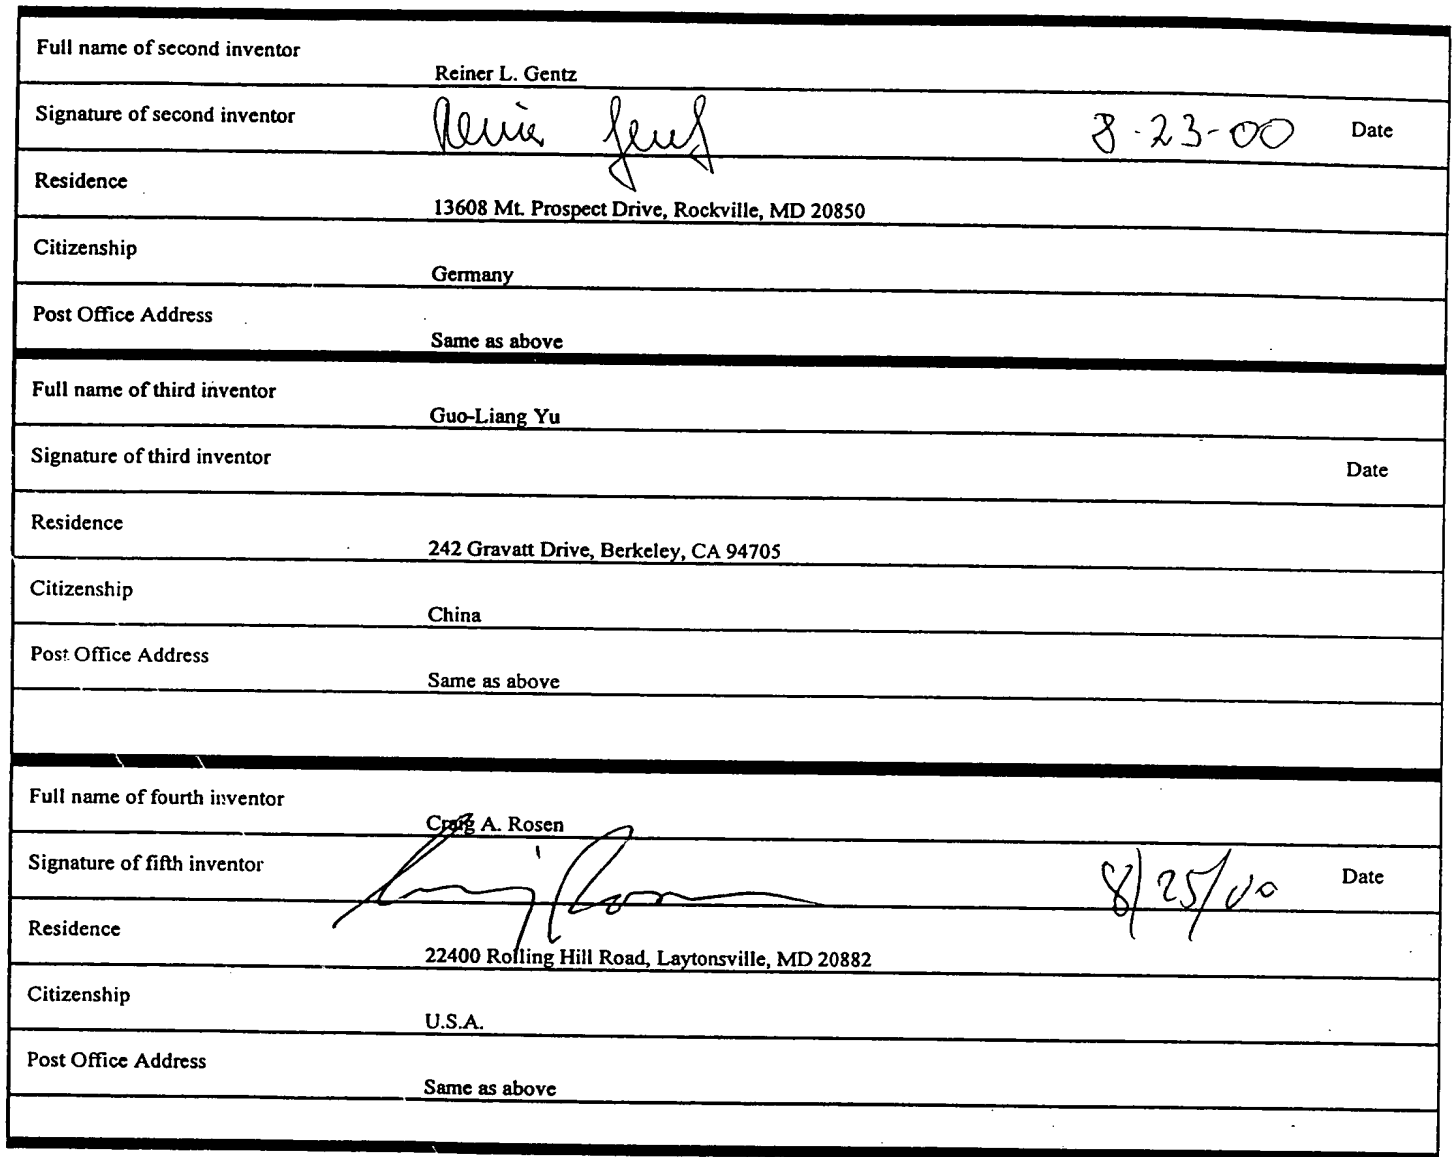 Full name of second inventor
Reiner L. Gentz
Signature of second inventor
Reiner Gentz 8-23-00 Date
Residence
13608 Mt. Prospect Drive, Rockville, MD 20850
Citizenship
Germany
Post Office Address
Same as above
Full name of third inventor
Guo-Liang Yu
Signature of third inventor
Date
Residence
242 Gravatt Drive, Berkeley, CA 94705
Citizenship
China
Post Office Address
Same as above
Full name of fourth inventor
Craig A. Rosen
Signature of fifth inventor
Craig Rosen 8/25/00 Date
Residence
22400 Rolling Hill Road, Laytonsville, MD 20882
Citizenship
U.S.A.
Post Office Address
Same as above